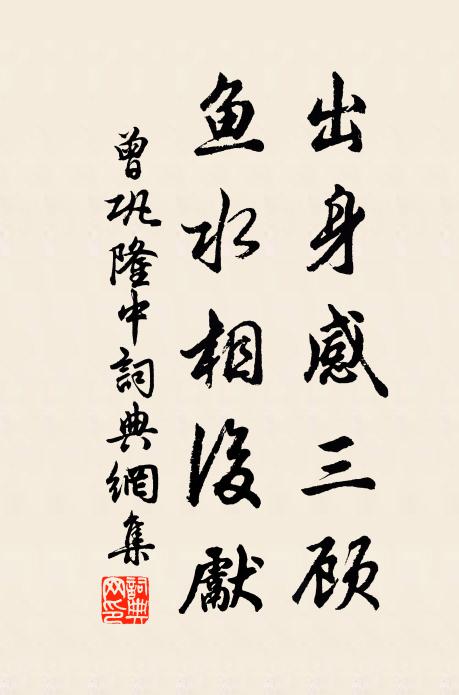 出身感三顾
鱼水相後獻
曾巩隆中詞典網集
詞典网印